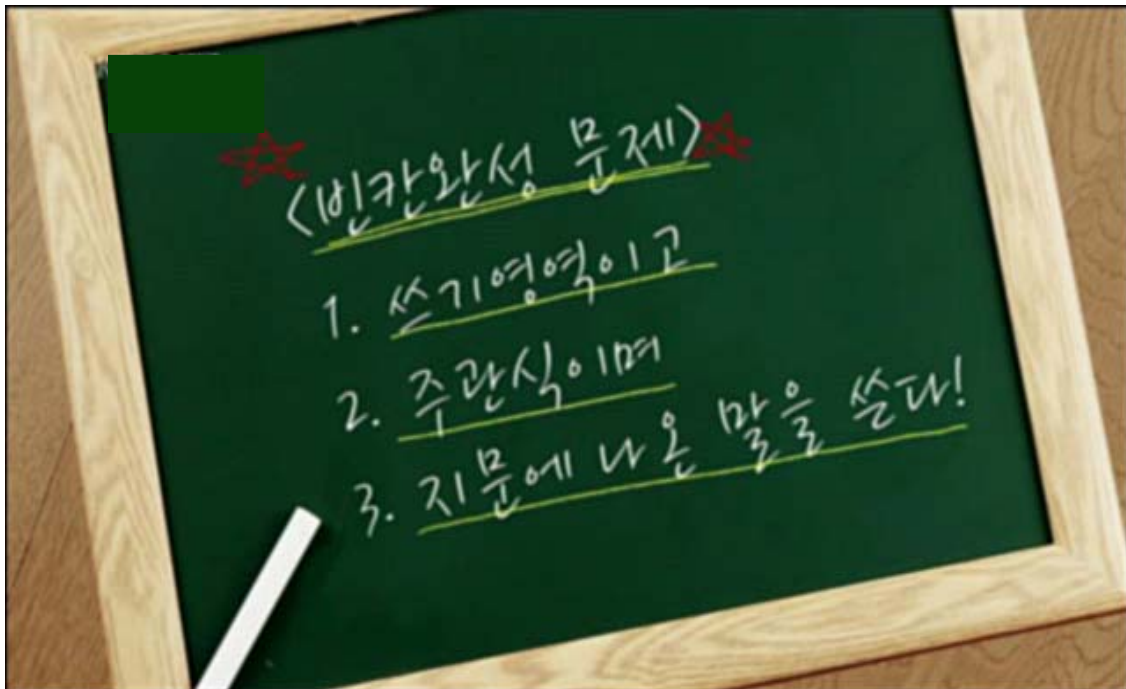 <빈칸완성 문제>
1. 쓰기영역이고
2. 주관식이며
3. 지문에 나온 말을 쓴다!